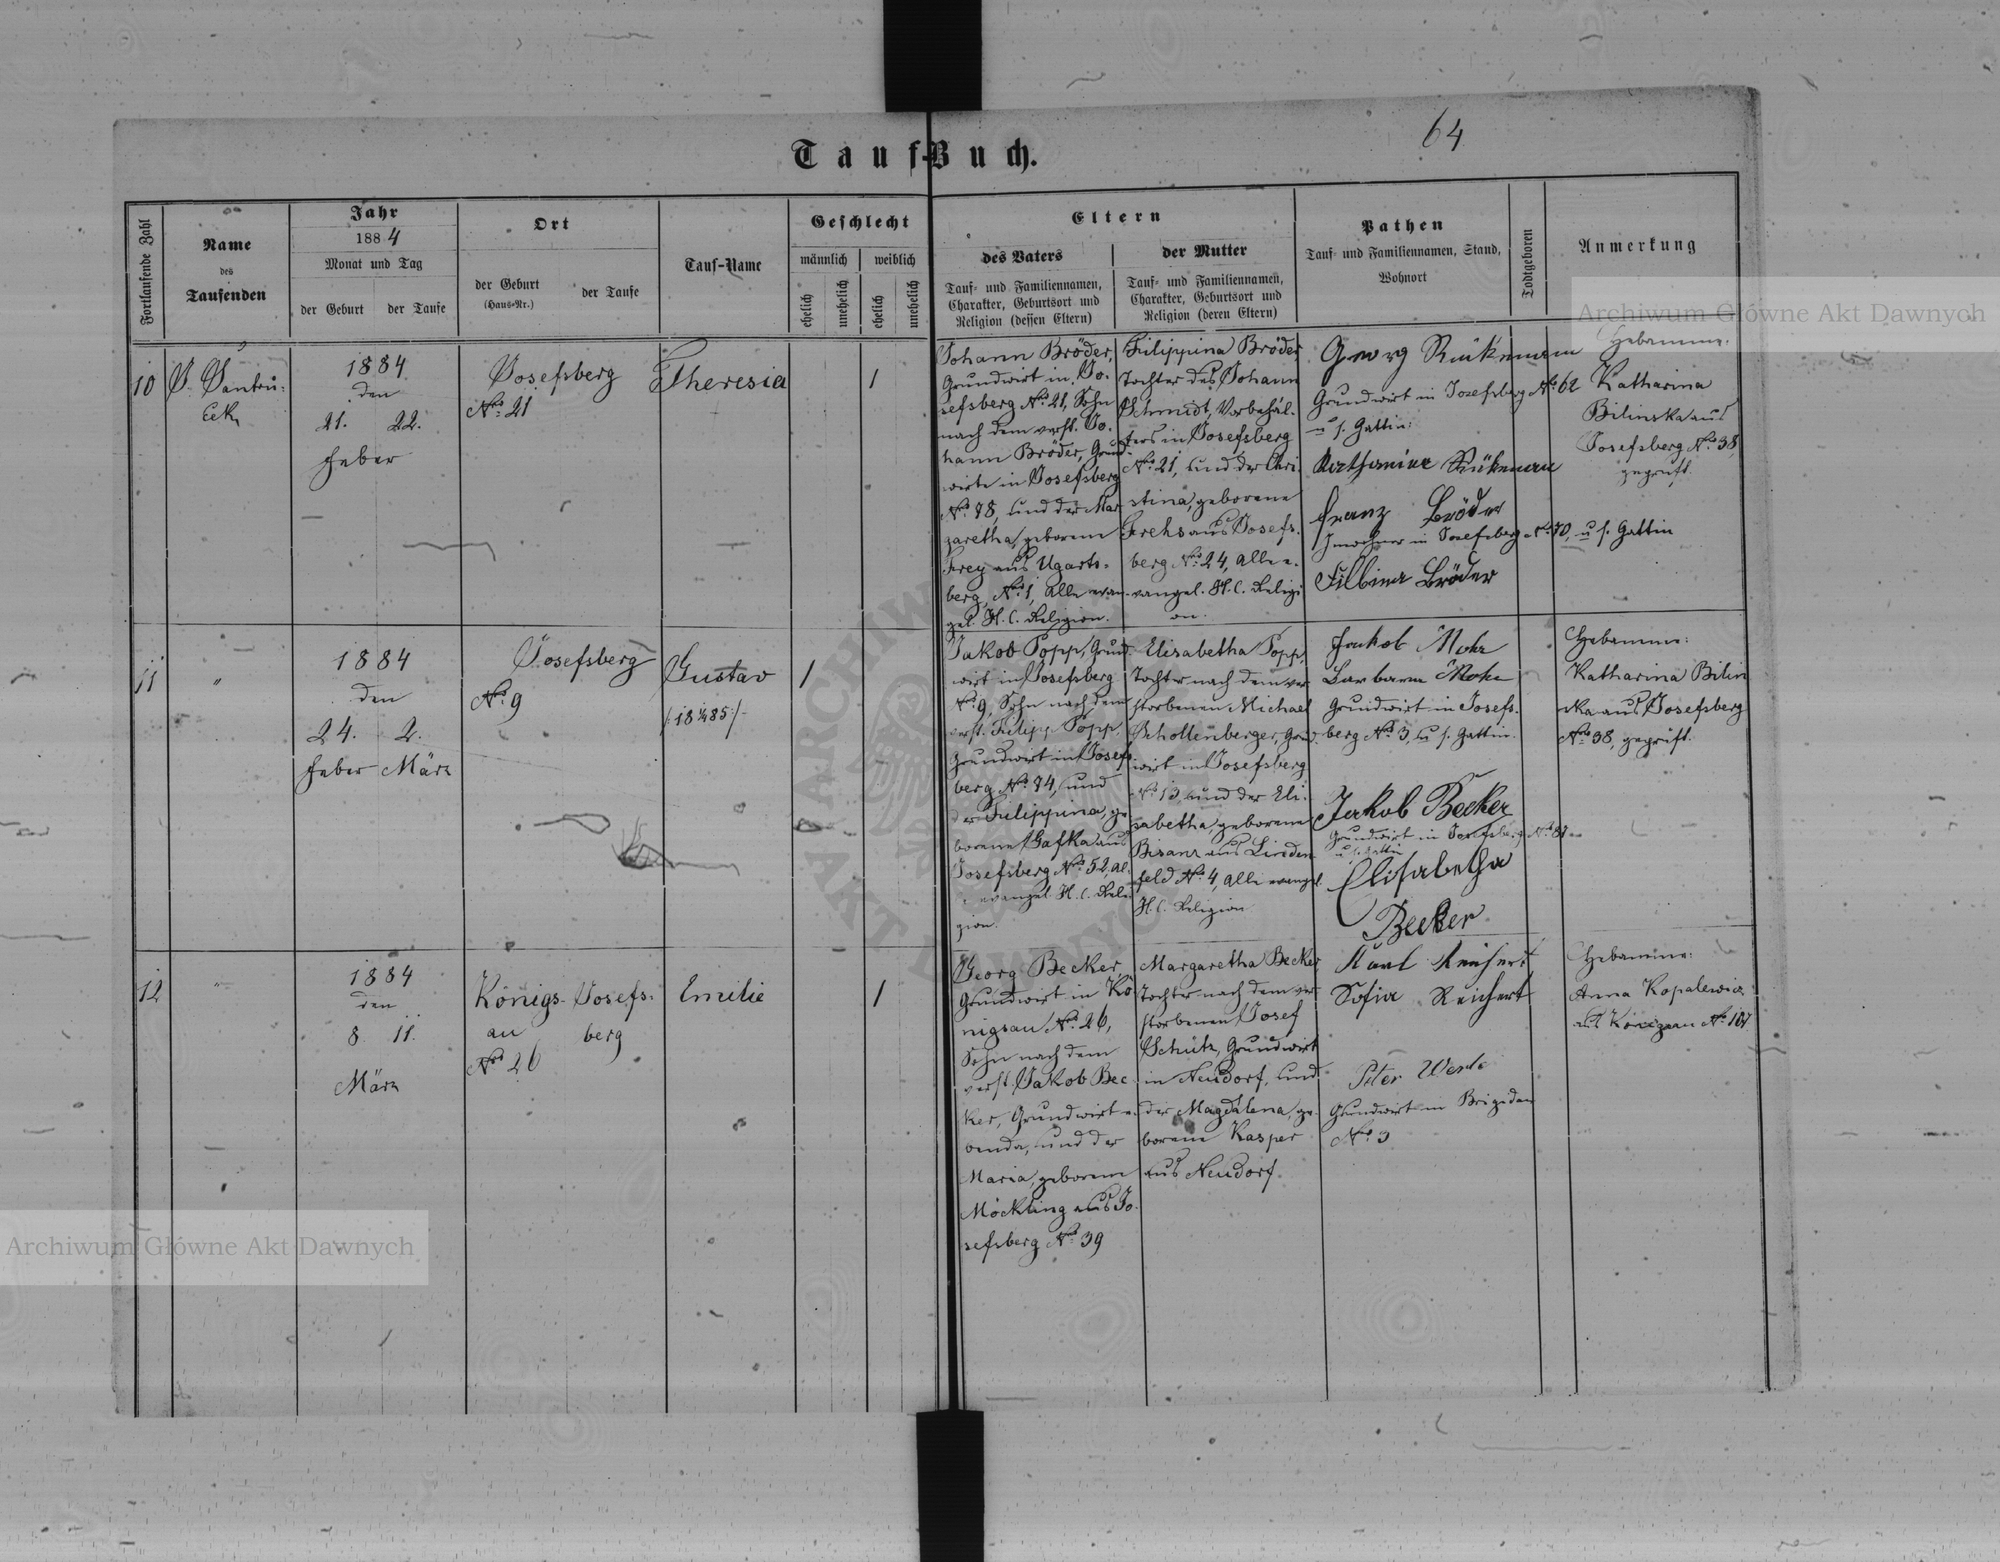 64
Tauf-Buch.
Fortlaufende Zahl
Name
des
Taufenden
Jahr
1884
Monat und Tag
der Geburt
der Taufe
Ort
der Geburt
(Haus-Nr.)
der Taufe
Tauf-Name
Geschlecht
männlich
weiblich
ehelich
unehelich
ehelich
unehelich
Eltern
des Vaters
Tauf- und Familiennamen,
Charakter, Geburtsort und
Religion (dessen Eltern)
der Mutter
Tauf- und Familiennamen,
Charakter, Geburtsort und
Religion (deren Eltern)
Pathen
Tauf- und Familiennamen, Stand,
Wohnort
Todtgeboren
Anmerkung
10
1884
den
21. 22.
Feber
Josefsberg
No 21
Theresia
1
Johann Bröder,
Grundwirt in Jo-
sefsberg No 21, Sohn
nach dem verst. Jo-
hann Bröder, Grund-
wirte in Josefsberg
No 78, und der Mar-
garetha, geborene
Frey aus Ugarts-
berg, No 1, Alle evan-
gel. H. C. Religion.
Filippina Bröder
Tochter des Johann
Schmidt, Vorbehäl-
ters in Josefsberg
No 21, und der Chri-
stina, geborene
Frehs aus Josefs-
berg No 24, Alle e-
vangel. H. C. Religi
on.
Georg Rükemann
Grundwirt in Josefsberg No 62
u s. Gattin:
Katharina Rükeman
Franz Bröder
Inwohner in Josefsberg No 70, u s. Gattin
Filbina Bröder
Hebamme:
Katharina
Bilinska aus
Josefsberg No 38,
geprüft.
11
"
1884
den
24. 2.
Feber März
Josefsberg
No 9
Gustav
1
Jakob Popp, Grund-
wirt in Josefsberg
No 9, Sohn nach dem
verst. Filipp Popp,
Grundwirt in Josefs-
berg No 74, und
der Filippina, ge-
borene Gafka aus
Josefsberg No 52, Al-
le evangel. H. C. Reli-
gion.
Elisabetha Popp,
Tochter nach dem ver
storbenen Michael
Schollenberger, Grund-
wirt in Josefsberg
No 13, und der Eli-
sabetha, geborene
Bisanz aus Linden-
feld No 4, Alle evangel.
H. C. Religion
Jakob Mohr
Barbara Mohr
Grundwirt in Josefs-
berg No 3, u s. Gattin.
Jakob Becker
Grundwirt in Josefsberg No 87
u s. Gattin
Elisabetha
Becker
Hebamme:
Katharina Bilin
ska aus Josefsberg
No 38, geprüft.
12
"
1884
den
8 11.
März
Königs-
au
No 26
Josefs-
berg
Emilie
1
Georg Becker,
Grundwirt in Kö
nigsau No 26,
Sohn nach dem
verst. Jakob Bec
ker, Grundwirt e-
benda, und der
Maria, geborene
Möckling aus Jo-
sefsberg No 39
Margaretha Becker
Tochter nach dem ver
storbenen Josef
Schütz, Grundwirt
in Neudorf, und
der Magdalena, ge-
borene Kasper
aus Neudorf.
Karl Reichert
Sofia Reichert
Peter Werle
Grundwirt in Brigidau
No 3
Hebamme:
Anna Kopalewicz
aus Königsau No 107
Archiwum Główne Akt Dawnych
Archiwum Główne Akt Dawnych